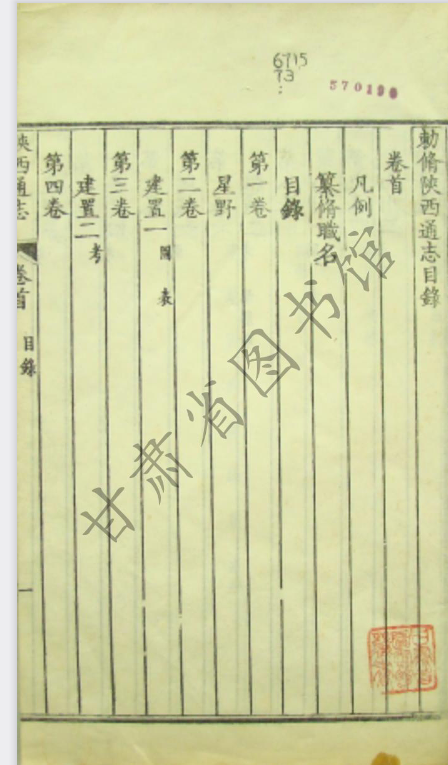 6715
73
:
570190
勅脩陝西通志目錄
卷首
凡例
纂脩職名
目錄
第一卷
星野
第二卷
建置一 圖 表
第三卷
建置二 考
第四卷
陝西通志 卷首 目錄 一
甘肃省图书馆